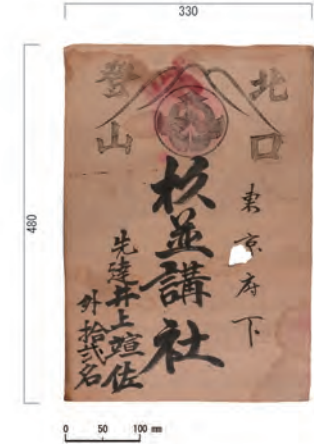 330
480
北口
登山
東京府下
杉並講社
先達井上竩佐
外拾弐名
0 50 100 mm